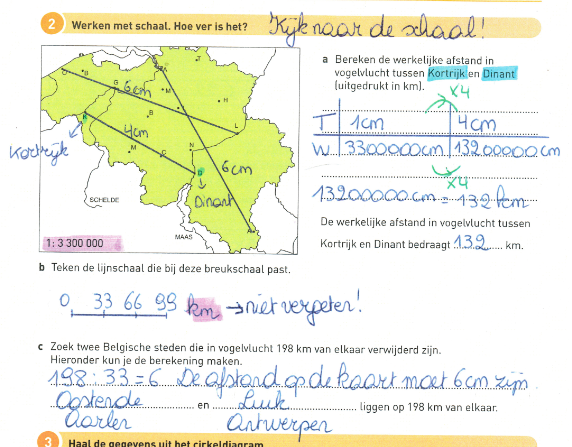 2 Werken met schaal. Hoe ver is het? Kijk naar de schaal!
a Bereken de werkelijke afstand in
vogelvlucht tussen Kortrijk en Dinant
(uitgedrukt in km).
x4
T 1cm 4cm
W 3300000cm 13200000cm
x4
13200000cm = 132km
De werkelijke afstand in vogelvlucht tussen
Kortrijk en Dinant bedraagt 132 km.
6cm
4cm
6cm
Kortrijk
Dinant
SCHELDE
MAAS
1: 3 300 000
b Teken de lijnschaal die bij deze breukschaal past.
0 33 66 99 km → niet vergeten!
c Zoek twee Belgische steden die in vogelvlucht 198 km van elkaar verwijderd zijn.
Hieronder kun je de berekening maken.
198 : 33 = 6 De afstand op de kaart moet 6cm zijn.
Oostende en Luik liggen op 198 km van elkaar.
Aarlen Antwerpen
3 Haal de gegevens uit het cirkeldiagram